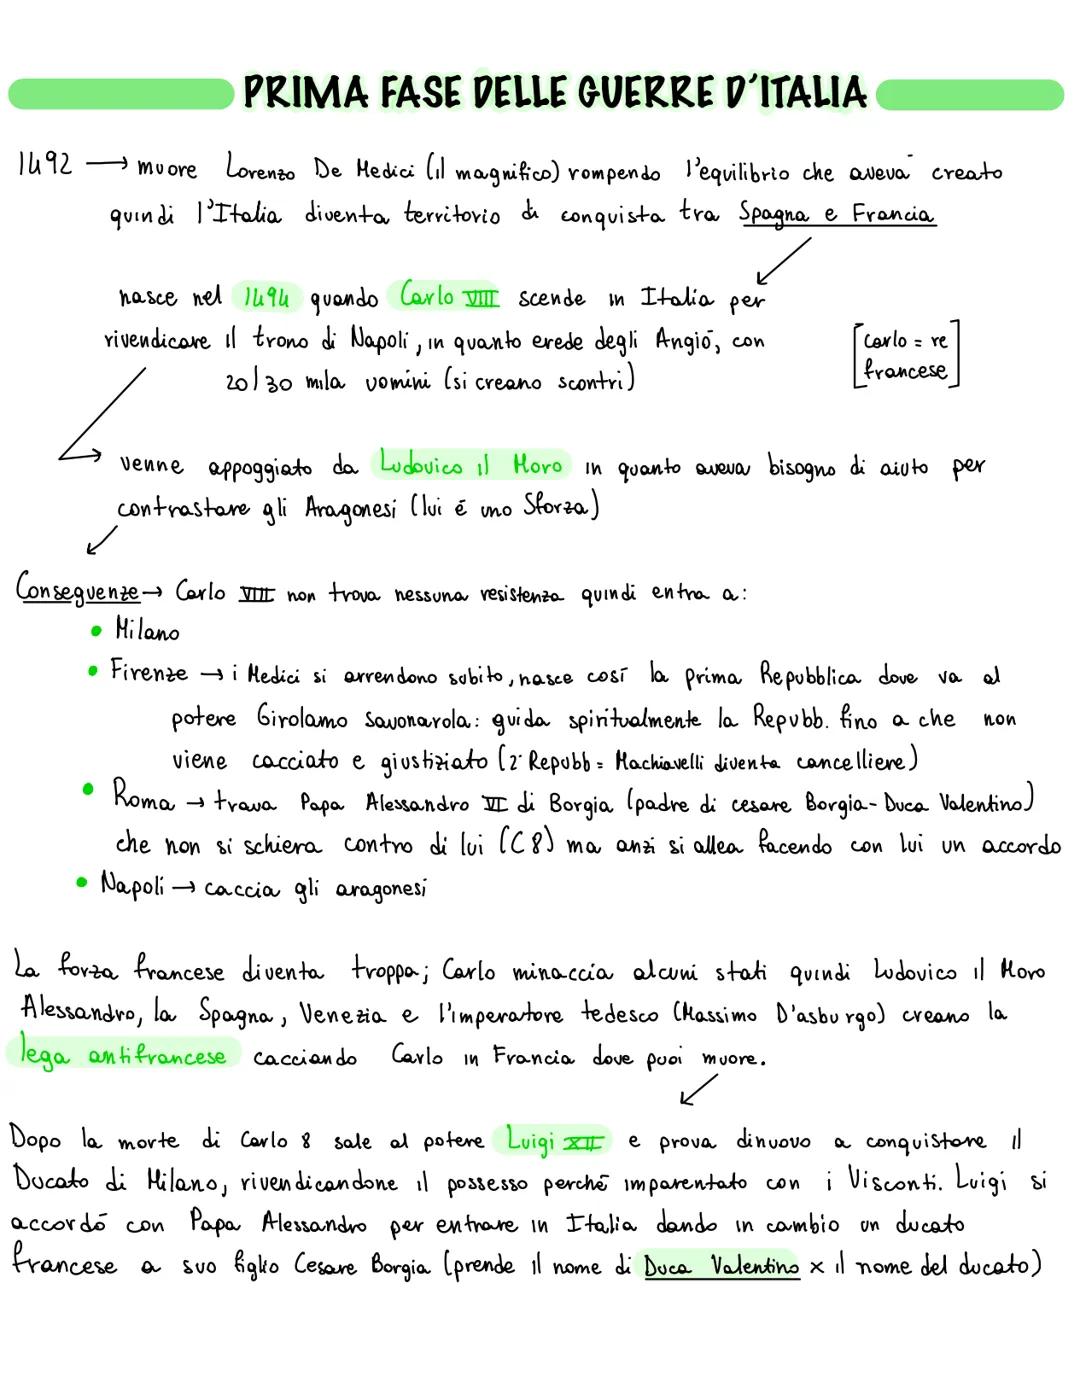 PRIMA FASE DELLE GUERRE D'ITALIA
1492 → muore Lorenzo De Medici (il magnifico) rompendo l'equilibrio che aveva creato
quindi l'Italia diventa territorio di conquista tra Spagna e Francia
nasce nel 1494 quando Carlo VIII scende in Italia per
rivendicare il trono di Napoli, in quanto erede degli Angiō, con
20/30 mila uomini (si creano scontri)
[Carlo = re
francese]
venne appoggiato da Ludovico il Moro in quanto aveva bisogno di aiuto per
contrastare gli Aragonesi (lui ē uno Sforza)
Conseguenze → Carlo VIII non trova nessuna resistenza quindi entra a:
• Milano
• Firenze → i Medici si arrendono subito, nasce cosī la prima Repubblica dove va al
potere Girolamo Savonarola: guida spiritualmente la Repubb. fino a che non
viene cacciato e giustiziato (2° Repubb = Machiavelli diventa cancelliere)
• Roma → trova Papa Alessandro VI di Borgia (padre di cesare Borgia - Duca Valentino)
che non si schiera contro di lui (C8) ma anzi si allea facendo con lui un accordo
• Napoli → caccia gli aragonesi
La forza francese diventa troppa; Carlo minaccia alcuni stati quindi Ludovico il Moro
Alessandro, la Spagna, Venezia e l'imperatore tedesco (Massimo D'asburgo) creano la
lega antifrancese cacciando Carlo in Francia dove puoi muore.
Dopo la morte di Carlo 8 sale al potere Luigi XII e prova dinuovo a conquistare il
Ducato di Milano, rivendicandone il possesso perchē imparentato con i Visconti. Luigi si
accordō con Papa Alessandro per entrare in Italia dando in cambio un ducato
francese a suo figlio Cesare Borgia (prende il nome di Duca Valentino x il nome del ducato)